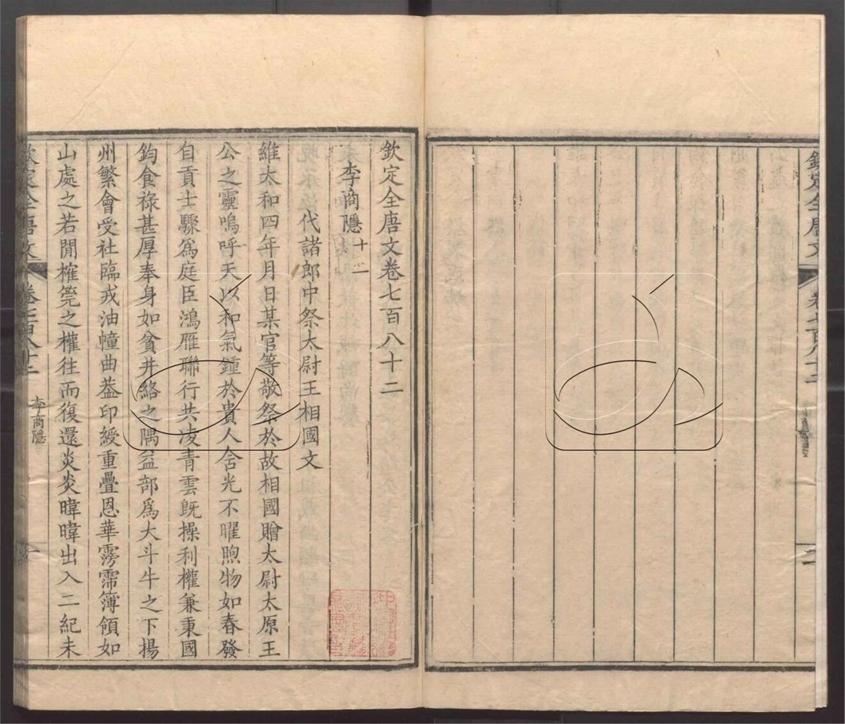 欽定全唐文
卷七百八十二
欽定全唐文卷七百八十二
李商隱十二
代諸郎中祭太尉王相國文
維太和四年月日某官等敬祭於故相國贈太尉太原王
公之靈嗚呼天以和氣鍾於貴人含光不曜煦物如春發
自貢士驟爲庭臣鴻雁聯行共凌青雲既操利權兼秉國
鈞食祿甚厚奉身如貧井絡之隅益部爲大斗牛之下揚
州繁會受社臨戎油幢曲葢印綬重疊恩華霶霈簿領如
山處之若閒榷筦之權往而復還炎炎暐暐出入二紀未
欽定全唐文
卷七百八十二
李商隱